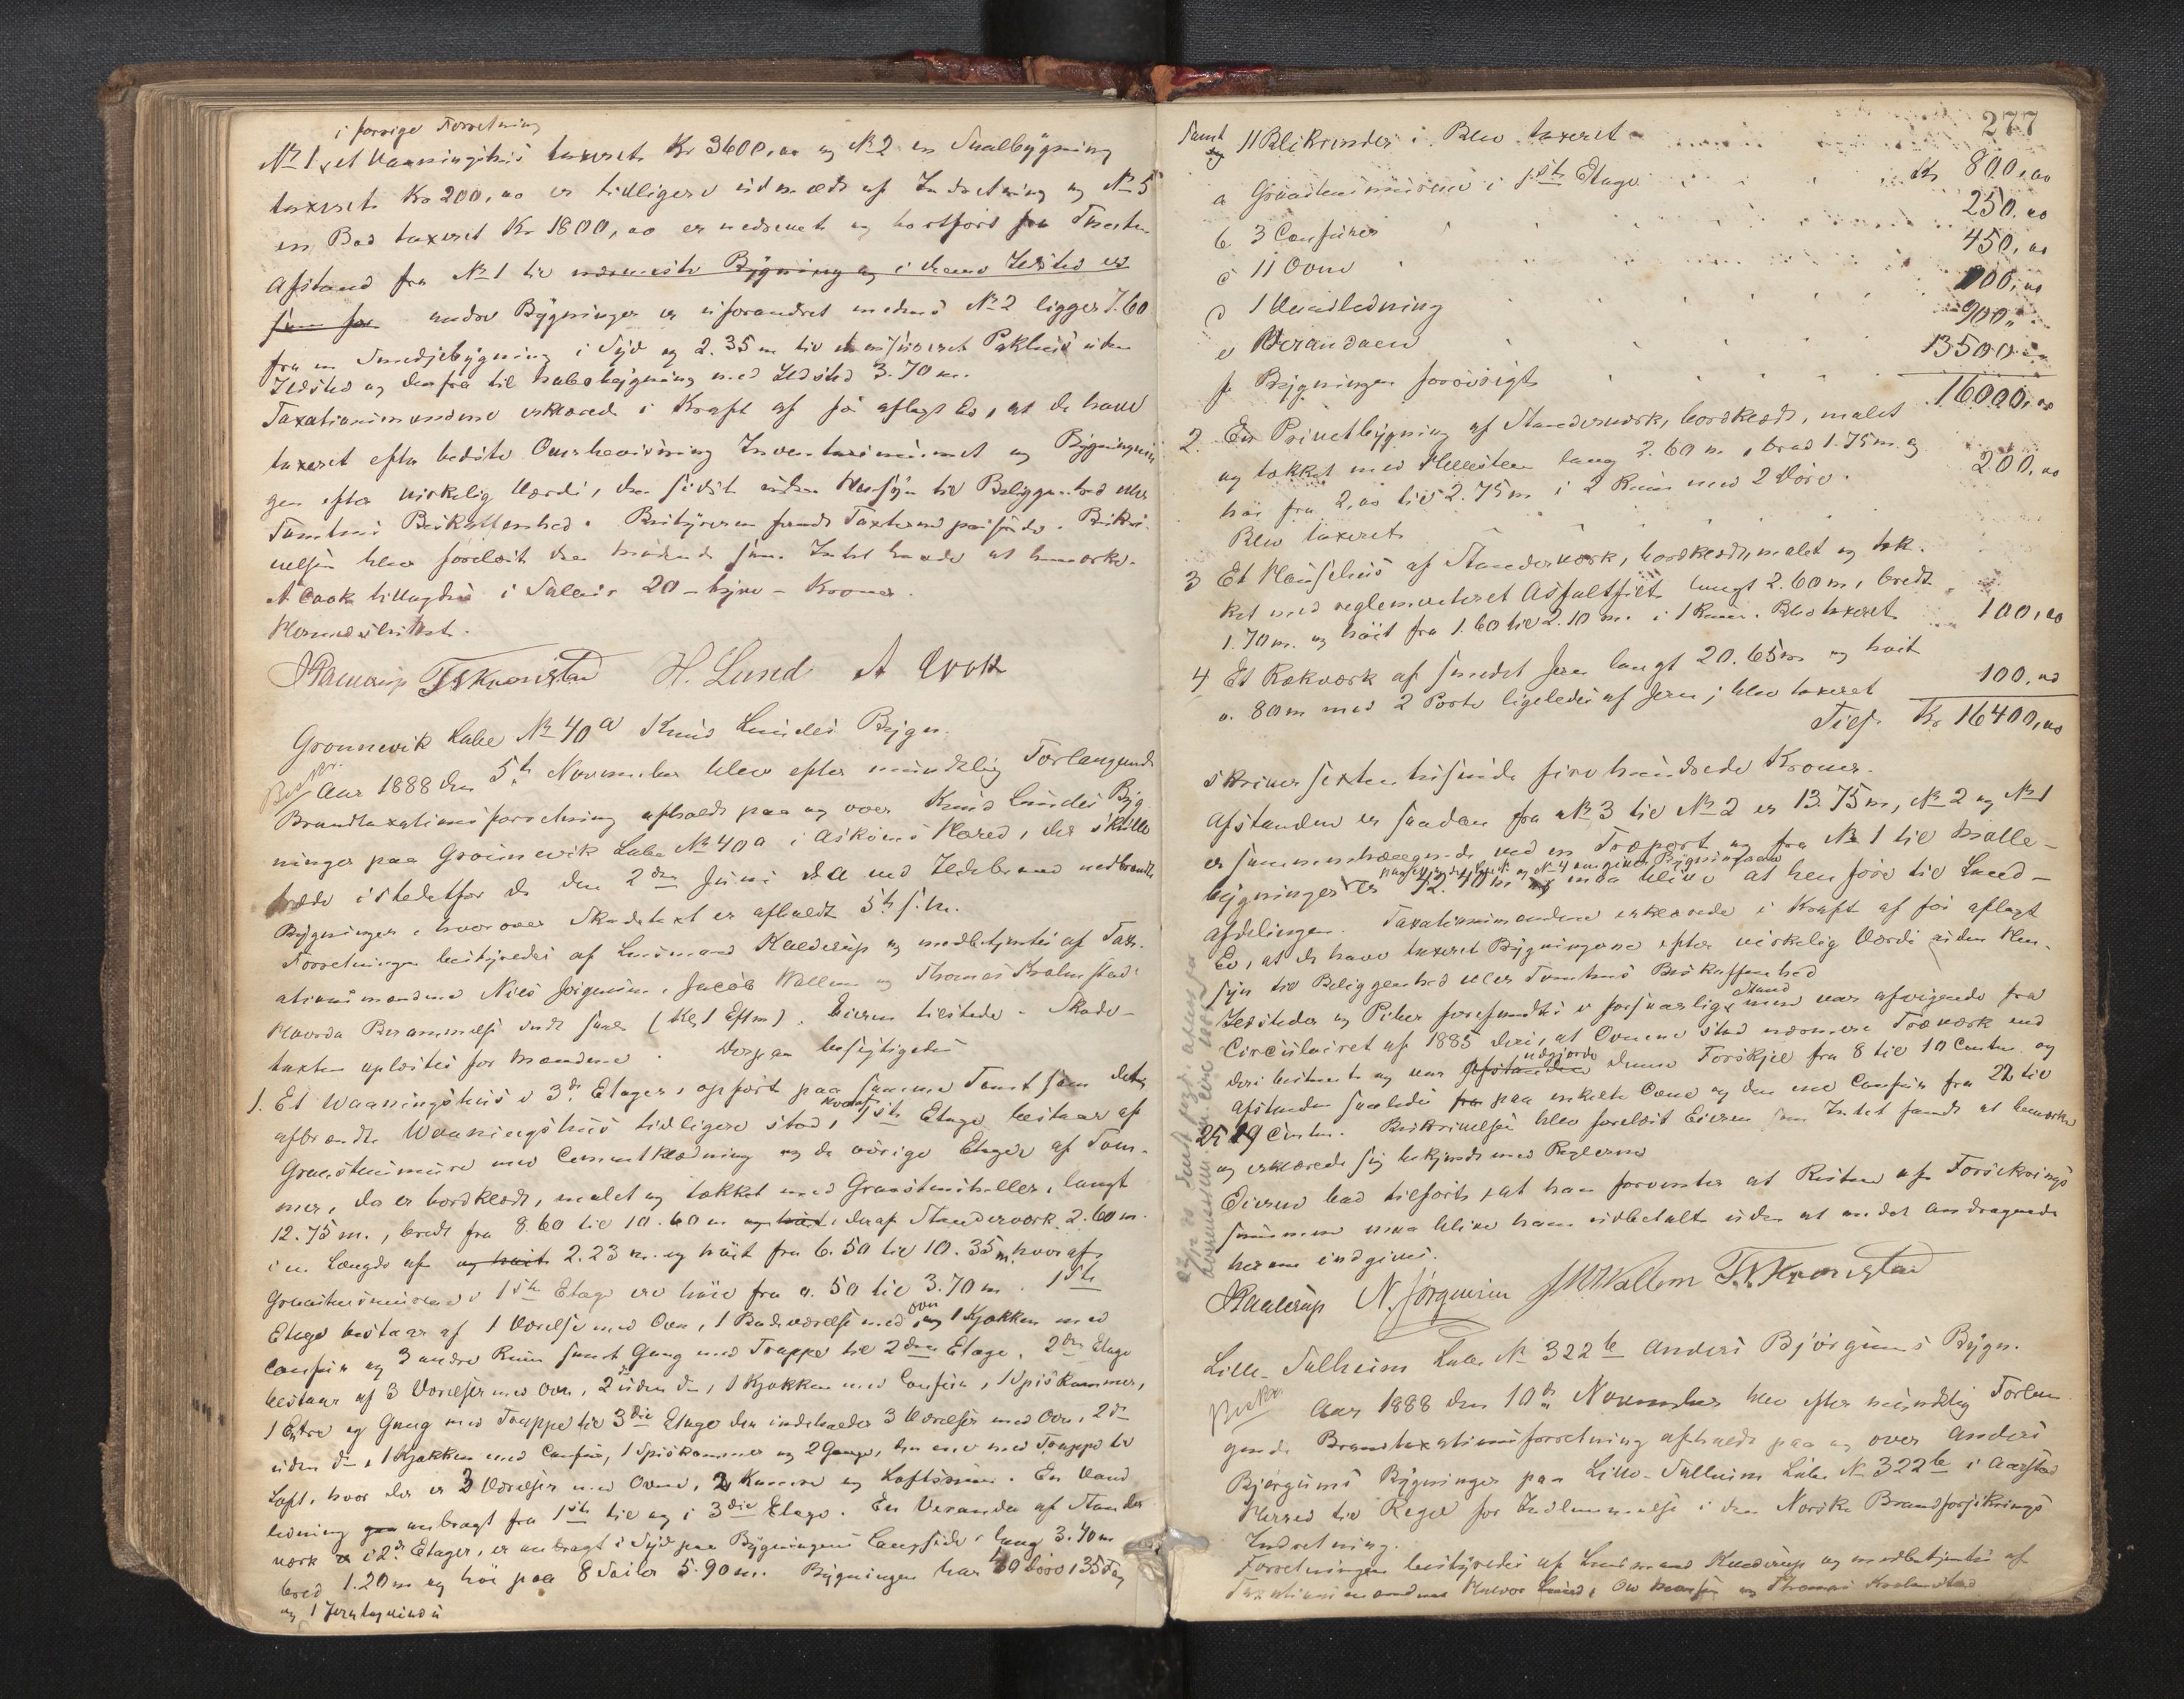 i forrige Forretning
No 1, et Vaaningshus taxeret Kr 3600,00 og No 2 en Smalbygning
taxeret Kr 200,00 er tidligere udmeldt af Indretning og No 5
en Bod taxeret Kr 1800,00 er nedrevet og bortført fra Tomten
Afstand fra No 1 til nærmeste Bygning og i denne Ildsted er
som før andre Bygninger er uforandret medens No 2 ligger 7.60
fra en Smedjebygning i Syd og 2.35 m til et uassureret Pakhus uden
Ildsted og derfra til Nabobygning med Ildsted 3.70 m.
Taxationsmændene erklærede i Kraft af før aflagt Ed, at de have
taxeret efter bedste Overbevisning Inventariums og Bygningerne
gen efter virkelig Værdi, den sidste uden Hensyn til Beliggenhed eller
Tomtens Beskaffenhed. Bestyreren fandt Taxterne passende. Beskri-
velsen blev forelæst den mødende som Intet havde at bemærke.
A Cook tillagdes i Salair 20 - tyve - Kroner.
A Cook
H. Lund
Grønnevik Labe No 40 a Knud Lundes Bygn.
Aar 1888 den 5te November blev efter mundtlig Forlangende
Brandtaxationsforretning afholdt paa og over Knud Lundes Byg
ninger paa Grønnevik Labe No 40 a i Askøens Herred, der skulle
træde istedetfor de den 2den Juni d.A. ved Ildebrand nedbrændte
Bygninger, hvorover Skadetaxt er afholdt 5te s.M.
Forretningen bestyredes af Lensmand Kaalerup og medbetjentes af Tax-
ationsmændene Niels Jørgensen, Jacob Wallem og Thomas Kvalmstad
Hvorda Berammelse endt sees (Kl 1 Eftm). Eieren tilstede. Skade-
taxten oplæstes for Mændene. Derpaa besigtigedes
1. Et Waaningshus i 3de Etager, opført paa samme Tomt som det
afbrændte Waaningshus tidligere stod, hvoraf 1ste Etage bestaar af
Graastensmure med Cementklædning og de øvrige Etager af Tøm-
mer, der er bordklædt, malet og tækket med Graastensheller, langt
12.75 m., bredt fra 8.60 til 10.60 m og høit, deraf Standerværk 2.60 m
i en Længde af og høit 2.23 m. og høit fra 6.50 til 10.35 m, hvoraf
Graastensmurene i 1ste Etage ere høie fra 0.50 til 3.70 m. 1ste
Etage bestaar af 1 Værelse med Ovn, 1 Badeværelse med Ovn og 1 Kjøkken med
Comfur og 3 andre Rum samt Gang med Trappe til 2den Etage. 2den Etage
bestaar af 3 Værelser med Ovn, 2 uden do, 1 Kjøkken med Comfur, 1 Spiskammer,
1 Entre og Gang med Trappe til 3die Etage der indeholder 3 Værelser med Ovn, 2de
uden do, 1 Kjøkken med Comfur, 1 Spiskammer og 2 Gange, den ene med Trappe til
Loft, hvor der er 3 Værelser med Ovne, 2 Kamre og Loftsrum. En Vand
ledning anbragt fra 1ste til og i 3die Etage. En Veranda af Stander
værk i 2de Etager, er anbragt i Syd paa Bygningens Langside, lang 3.40 m
bred 1.20 m og høi paa 8 Søiler 5.90 m. Bygningen har 40 Døre, 35 Fag
og 1 Jerntagvindu
277
samt og 11 Blikrender i. Blev taxeret
a Graastensmurene i 1ste Etage Kr 800,00
b 3 Comfurer 250,00
c 11 Ovne 450,00
d 1 Vandledning 100,00
e Verandaen 900,,
f Bygningen forøvrigt 13500,00
16000,00
2. En Privetbygning af Standerværk, bordklædt, malet
og tækket med Hellesten lang 2.60 m, bred 1.75 m. og
høi fra 2,00 til 2.75 m i 2 Rum med 2 Døre.
Blev taxeret 200,00
3 Et Hønsehus af Standerværk, bordklædt, malet og tæk-
ket med reglementeret Asfaltfilt langt 2.60 m, bredt
1.70 m. og høit fra 1.60 til 2.10 m. i 1 Rum. Blev taxeret 100,00
4 Et Rækværk af smedet Jern langt 20.65 m og høit
0.80 m med 2 Porte ligeledes af Jern; blev taxeret 100,00
Tils. Kr 16400,00
skriver sexten tusinde fire hundrede Kroner.
Afstanden er saadan fra No 3 til No 2 er 13.75 m, No 2 og No 1
er sammenhængende ved en Træport og fra No 1 til Nabo-
bygninger er 42.40 m og maa blive at henføre til Land-
afdelingen. Taxationsmændene erklærede i Kraft af før aflagt
Ed, at de have taxeret Bygningerne efter virkelig Værdi uden Hen-
syn til Beliggenhed eller Tomtens Beskaffenhed
Ildsteder og Piber forefandtes i forsvarlig Stand men var afvigende fra
Circulairet af 1885 deri, at Ovnene stod nærmere Træværk end
deri bestemt og var Afstanden udgjorde denne Forskjel fra 8 til 10 Centm. og
Afstanden saaledes fra paa enkelte Ovne og den ene Comfur fra 22 til
25 29 Centm. Beskrivelsen blev forelæst Eieren som Intet fandt at bemærke
og erklærede sig bekjendt med Reglerne
Eieren bad tilført, at han forventer at Resten af Forsikrings
summen maa blive ham udbetalt uden at andet Andragende
herom indgives.
N. Jørgensen JM Wallem
Lille-Solheim Labe No 322 b Anders Bjørgums Bygn.
Aar 1888 den 10de November blev efter mundtlig Forlan-
gende Brandtaxationsforretning afholdt paa og over Anders
Bjørgums Bygninger paa Lille-Solheim Labe No 322 b i Aarstad
Herred til Regel for Indlemmelse i den Norske Brandforsikrings
Indretning.
Forretningen bestyredes af Lensmand Kaalerup og medbetjentes af
Taxationsmændene Halvor Lund, Ole Hansen og Thomas Kvalmstad